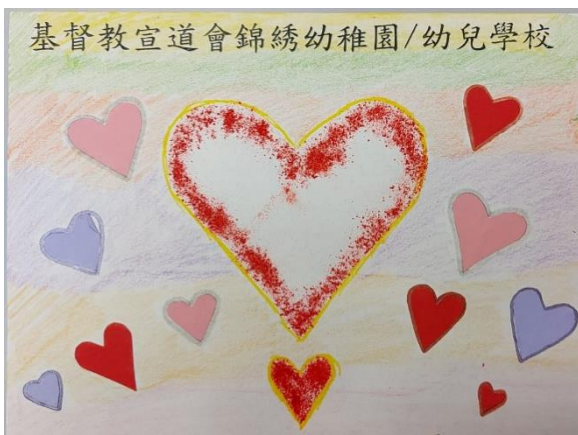 基督教宣道會錦綉幼稚園/幼兒學校